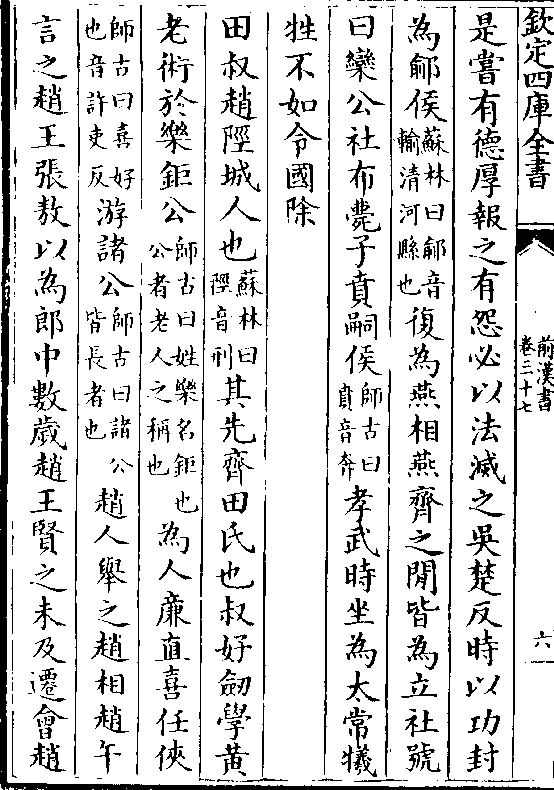 欽定四庫全書
前漢書
卷三十七
六
是嘗有德厚報之有怨必以法滅之吳楚反時以功封
為鄃侯蘇林曰鄃音輸清河縣也復為燕相燕齊之閒皆為立社號
曰欒公社布薨子賁嗣侯師古曰賁音奔孝武時坐為太常犧
牲不如令國除
田叔趙陘城人也蘇林曰陘音刑其先齊田氏也叔好劒學黃
老術於樂鉅公師古曰姓樂名鉅也公者老人之稱也為人廉直喜任俠
師古曰喜好也音許吏反游諸公師古曰諸公皆長者也趙人舉之趙相趙午
言之趙王張敖以為郎中數歲趙王賢之未及遷會趙